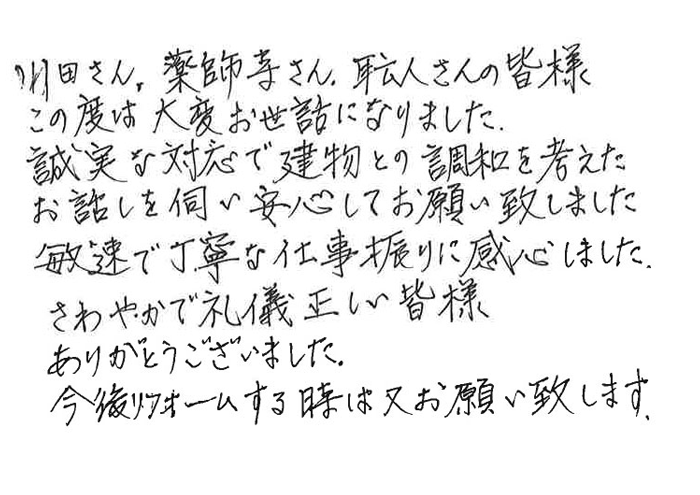 川田さん。薬師寺さん、職人さんの皆様
この度は大変お世話になりました。
誠実な対応で建物との調和を考えた
お話しを伺い安心してお願い致しました
敏速で丁寧な仕事振りに感心しました。
さわやかで礼儀正しい皆様
ありがとうございました。
今後リフォームする時は又お願い致します。